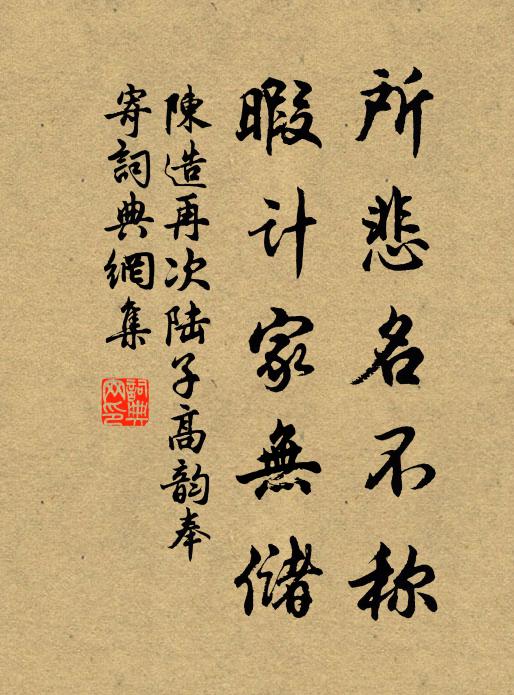 所悲名不称
暇计家無儲
陳造再次陆子高韵奉
寄詞典網集
詞典